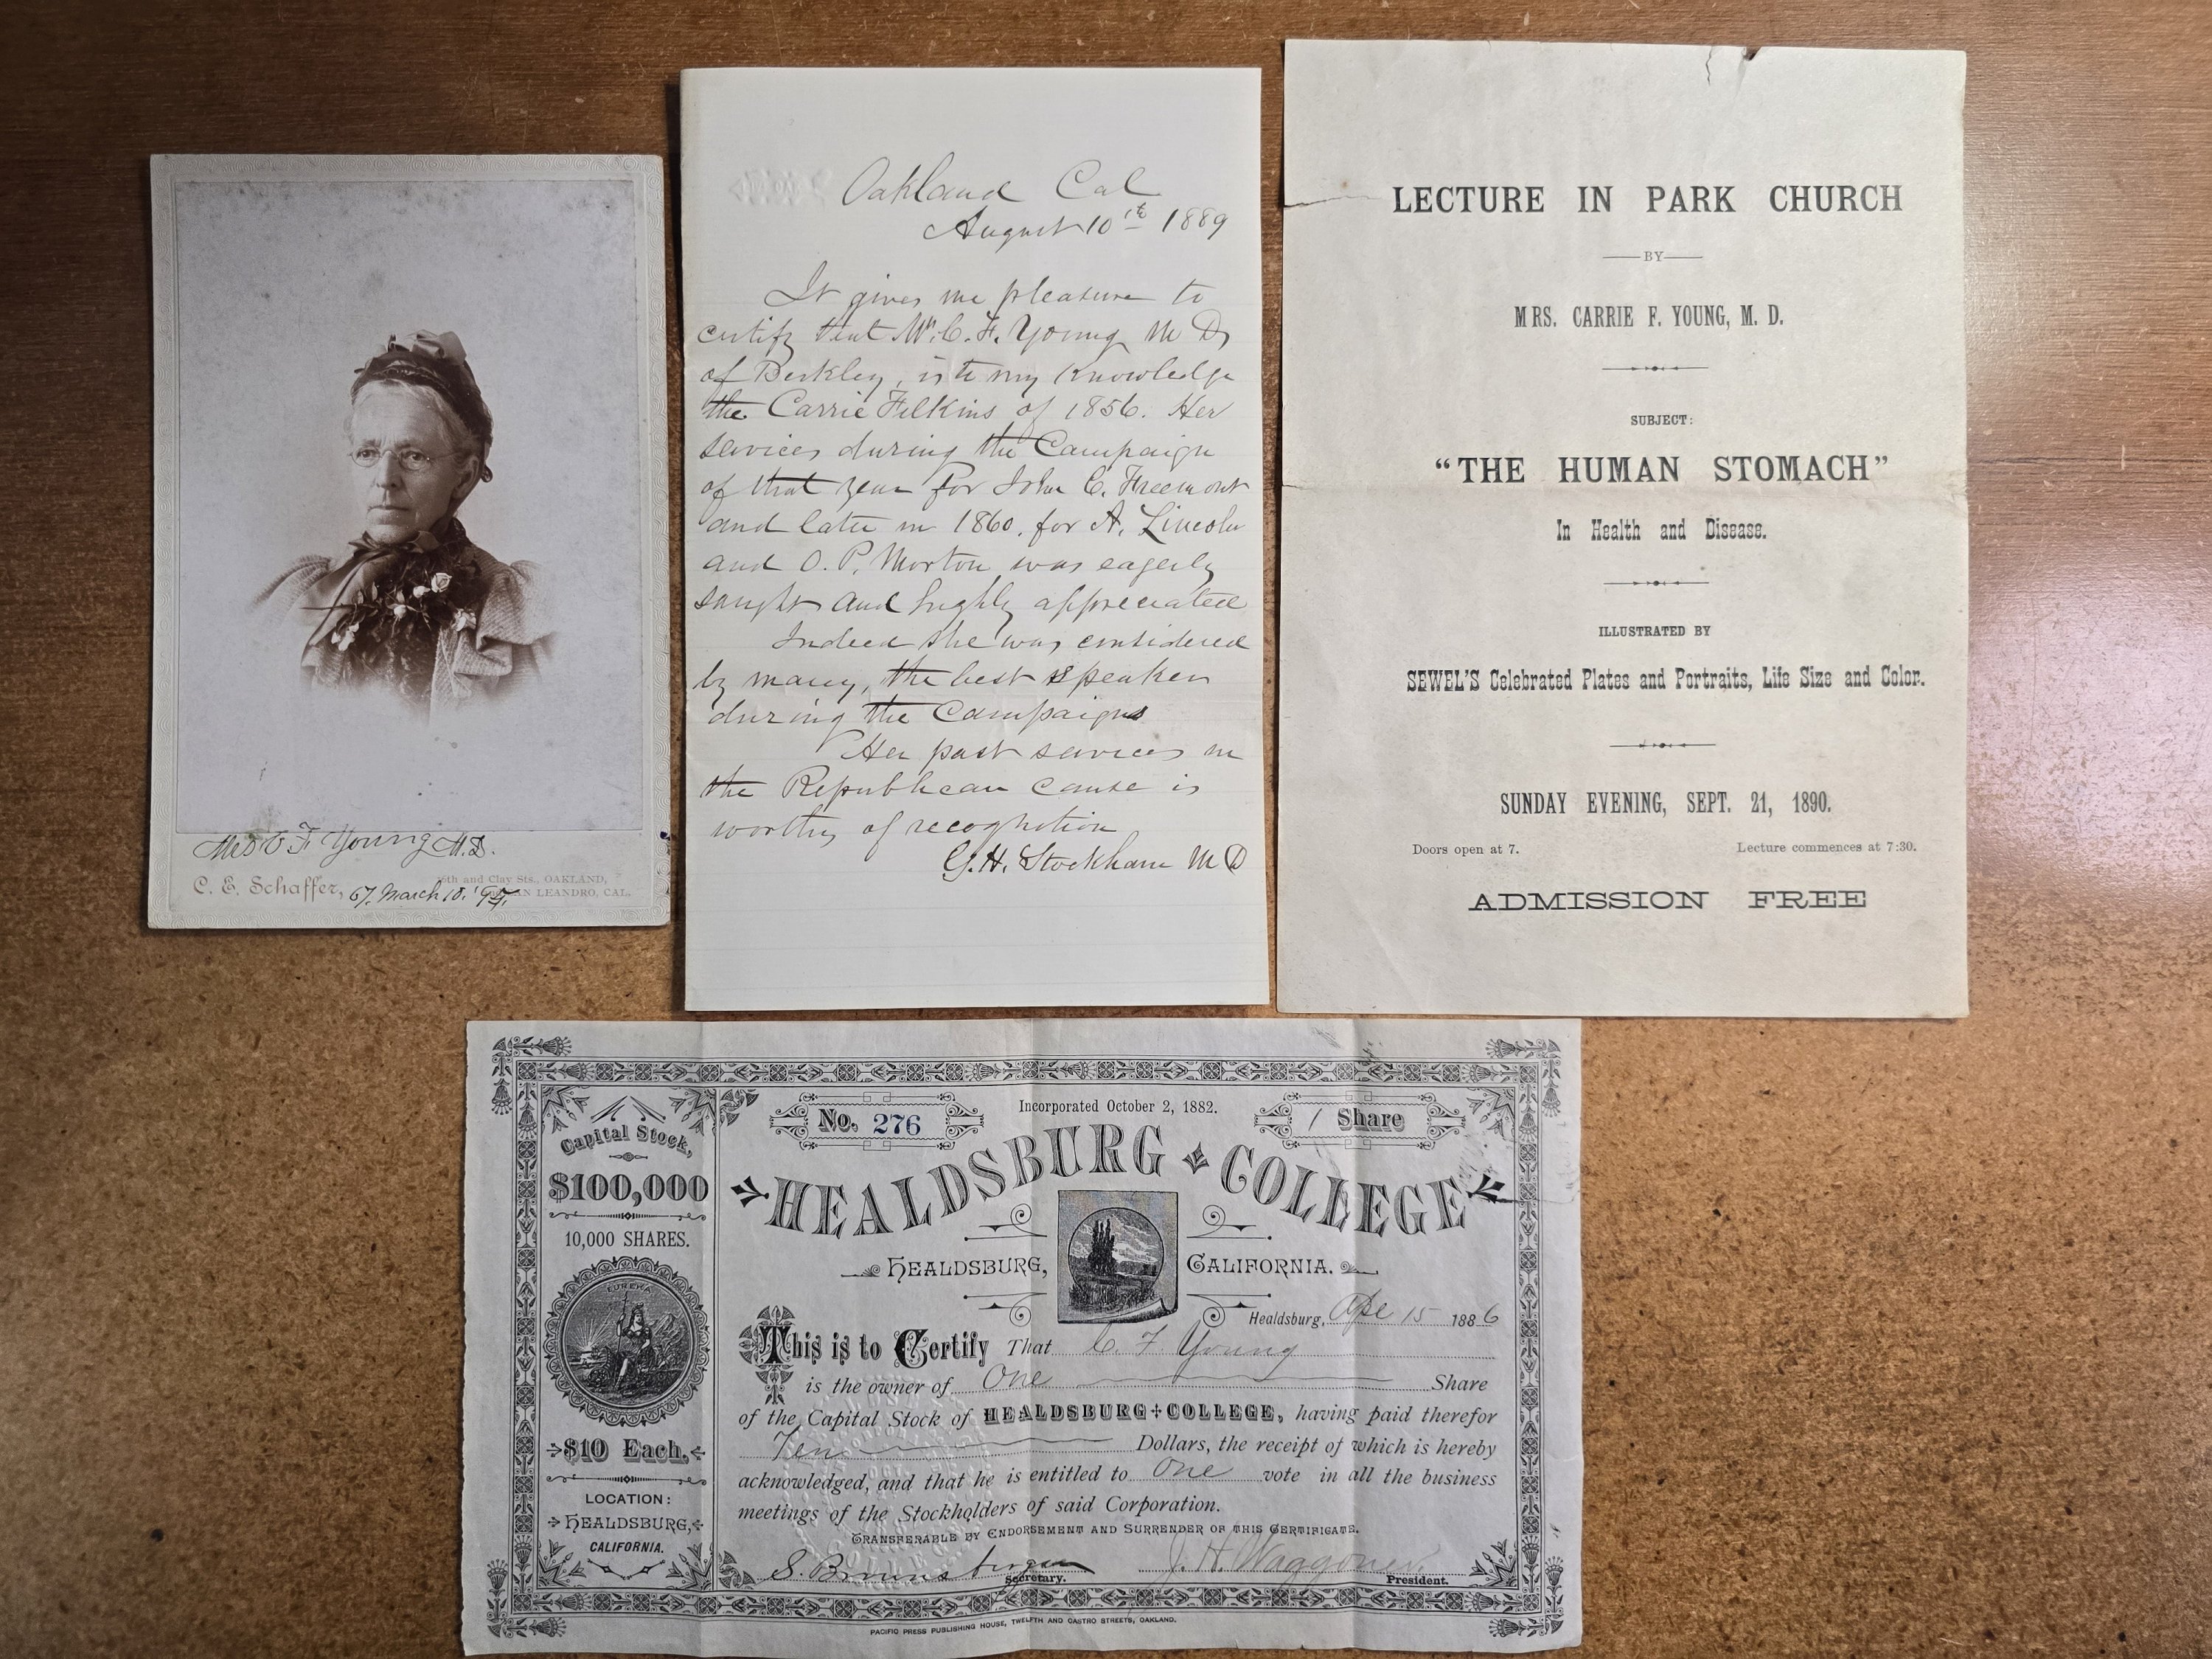 Mrs C F Young M.D.
C. E. Schaffer,
th and Clay Sts., OAKLAND,
SAN LEANDRO, CAL.
67. March 18.
Oakland Cal
August 10th 1889
It gives me pleasure to
certify that Mrs. C. F. Young M D,
of Berkley, is to my Knowledge
the Carrie Filkins of 1856. Her
services during the Campaign
of that year for John C. Freemont
and later in 1860, for A. Lincoln
and O. P. Morton was eagerly
sought and highly appreciated
Indeed she was considered
by many, the best speaker
during the Campaigns
Her past services in
the Republican cause is
worthy of recognition
G. H. Stockham M D
LECTURE IN PARK CHURCH
BY
MRS. CARRIE F. YOUNG, M. D.
SUBJECT:
"THE HUMAN STOMACH"
In Health and Disease.
ILLUSTRATED BY
SEWEL'S Celebrated Plates and Portraits, Life Size and Color.
SUNDAY EVENING, SEPT. 21, 1890.
Doors open at 7. Lecture commences at 7:30.
ADMISSION FREE
Capital Stock,
$100,000
10,000 SHARES.
EUREKA
$10 Each.
LOCATION:
HEALDSBURG,
CALIFORNIA.
No. 276 Incorporated October 2, 1882. 1 Share
HEALDSBURG COLLEGE
HEALDSBURG, CALIFORNIA.
Healdsburg, 15 1886
This is to Certify That C. F Young
is the owner of One Share
of the Capital Stock of HEALDSBURG COLLEGE, having paid therefor
Ten Dollars, the receipt of which is hereby
acknowledged, and that he is entitled to One vote in all the business
meetings of the Stockholders of said Corporation.
TRANSFERABLE BY ENDORSEMENT AND SURRENDER OF THIS CERTIFICATE.
S. Brownsberger Secretary. J. H. Waggoner President.
PACIFIC PRESS PUBLISHING HOUSE, TWELFTH AND CASTRO STREETS, OAKLAND.